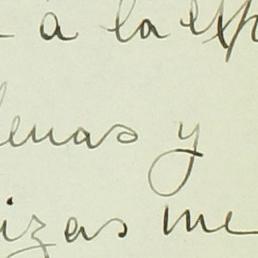 a la exp
lenas y
izas me